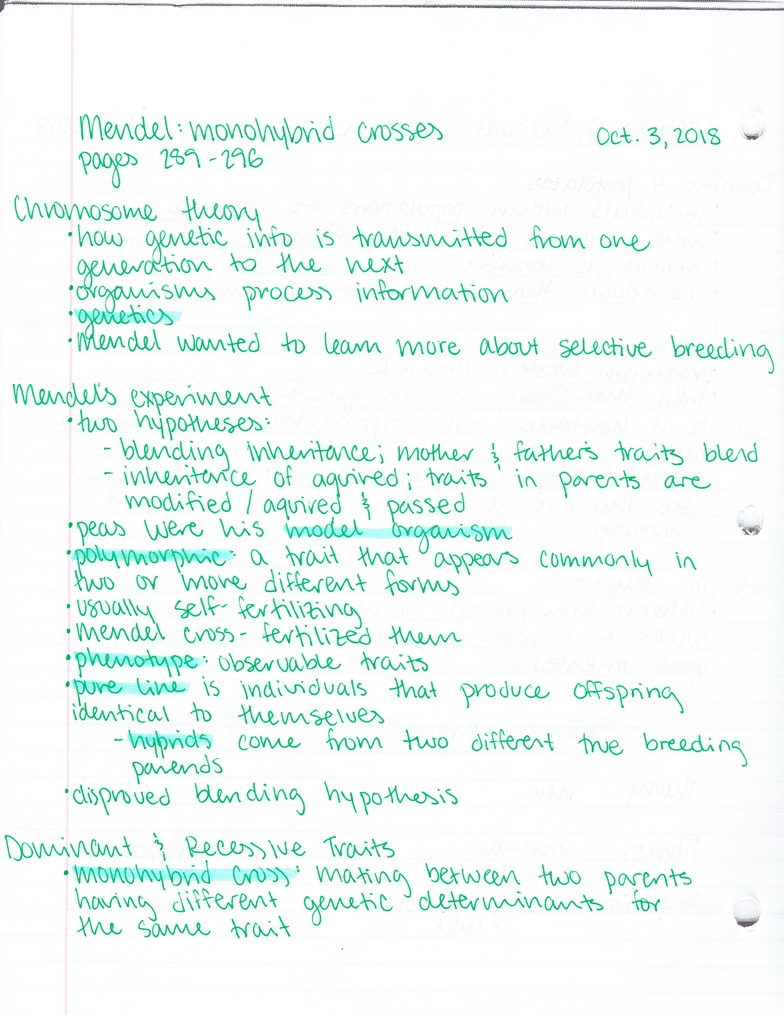 Mendel: monohybrid crosses Oct. 3, 2018
pages 289-296
Chromosome theory
• how genetic info is transmitted from one
generation to the next
• organisms process information
• genetics
• Mendel wanted to learn more about selective breeding
Mendel's experiment
• two hypotheses:
- blending inheritance; mother & father's traits blend
- inheritance of aquired; traits in parents are
modified / aquired & passed
• peas were his model organism
• polymorphic: a trait that appears commonly in
two or more different forms
• usually self-fertilizing
• Mendel cross-fertilized them
• phenotype: observable traits
• pure line is individuals that produce offspring
identical to themselves
- hybrids come from two different true breeding
parends
• disproved blending hypothesis
Dominant & Recessive Traits
• monohybrid cross: mating between two parents
having different genetic determinants for
the same trait